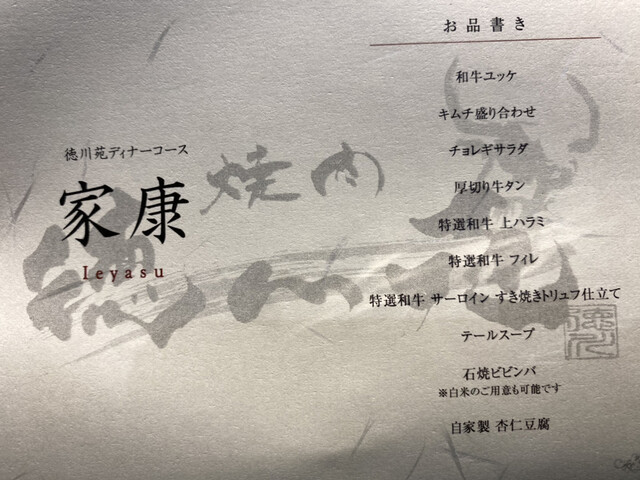 徳川苑ディナーコース
家康
Ieyasu
焼肉
徳川苑
お品書き
和牛ユッケ
キムチ盛り合わせ
チョレギサラダ
厚切り牛タン
特選和牛 上ハラミ
特選和牛 フィレ
特選和牛 サーロイン すき焼きトリュフ仕立て
テールスープ
石焼ビビンバ
※白米のご用意も可能です
自家製 杏仁豆腐